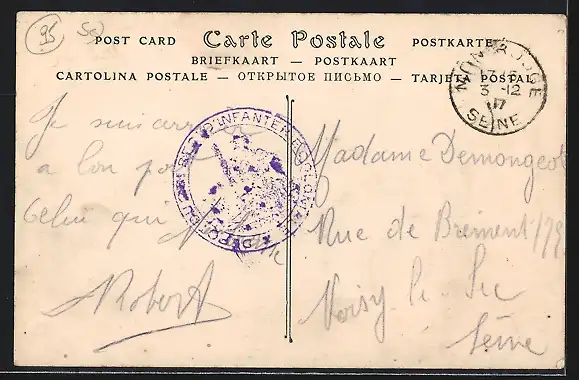 95
POST CARD Carte Postale POSTKARTE
BRIEFKAART — POSTKAART
CARTOLINA POSTALE — ОТКРЫТОЕ ПИСЬМО — TARJETA POSTAL
MONTROUGE
17
3 -12
17
SEINE
D'INFANTERIE COLONIALE
DÉPÔT DU
Je suis arrivé
a bon port
Celui qui
Robert
Madame Demongeot
Rue de Brément 79
Noisy le Sec
Seine